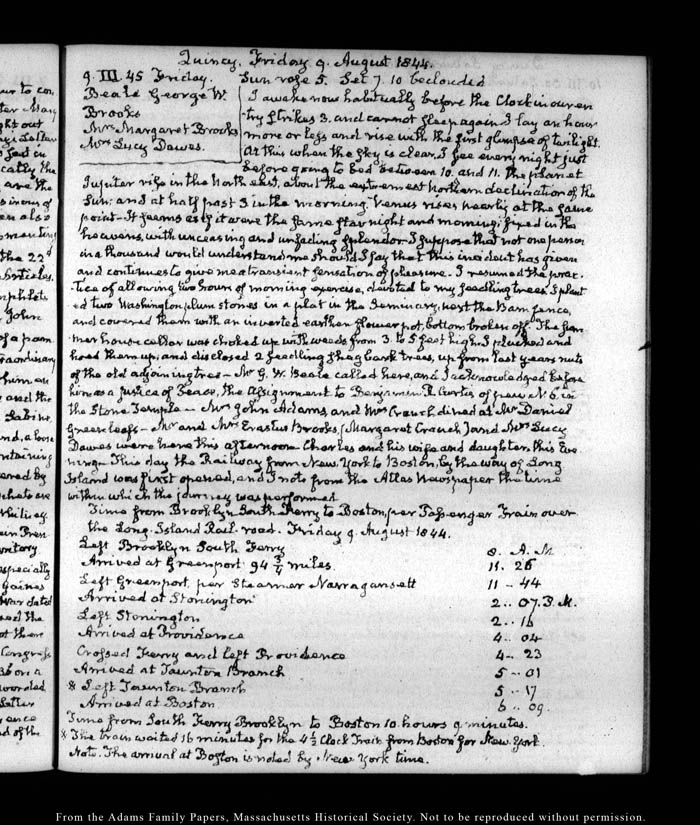 Quincy, Friday 9. August 1844.
9. III. 45 Friday. Sun rose 5. Set 7. 10 beclouded
Beale George W.
Brooks
Mrs Margaret Brooks
Mrs Lucy Dawes.
I awake now habitually before the Clock in our en-
-try strikes 3. and cannot sleep again. I lay an hour
more or less and rise with the first glimpse of twilight.
At this when the sky is clear, I see every night just
before going to bed between 10. and 11. the planet
Jupiter rise in the North east, about the extremest Northern declination of the
Sun; and at half past 3 in the morning. Venus rises nearly at the same
point. It seems as if it were the same star night and morning; fixed in the
heavens, with unceasing and unfading splendor. I suppose that not one person
in a thousand would understand me should I say that this incident has given
and continues to give me a transient sensation of pleasure. I resumed the prac-
-tice of allowing two hours of morning exercise, devoted to my seedling trees. I plant
ed two Washington plum stones in a plat in the Seminary, next the Barn fence,
and covered them with an inverted earthen flower pot, bottom broken off. The far-
mer house cellar was choked up with weeds from 3. to 5 feet high. I plucked and
hoed them up, and disclosed 2 seedling shagbark trees, up from last years nuts
of the old adjoining tree — Mr G. W. Beale called here, and I acknowledged before
him as a Justice of Peace, the assignment to Benjamin R. Curtis of pew N. 6. in
the Stone Temple — Mrs John Adams and Miss Crouch dined at Mr Daniel
Greenleafs — Mr and Mrs Erastus Brooks, (Margaret Cranch) and Mrs Lucy
Dawes were here this afternoon. Charles and his wife and daughter this Eve
ning — This day the Railway from New York to Boston, by the way of Long
Island was first opened, and I note from the Atlas Newspaper the time
within which the journey was performed
Time from Brooklyn South Ferry to Boston, per Passenger Train over
the Long Island Rail-road. Friday 9. August 1844.
Left Brooklyn South Ferry 8. A. M.
Arrived at Greenport 94 3/4 miles. 11. 26
Left Greenport, per Steamer Narragansett 11 - 44
Arrived at Stonington 2.. 07. P. M.
Left Stonington 2.. 16
Arrived at Providence 4.. 04
Crossed Ferry and left Providence 4.. 23
Arrived at Taunton Branch 5.. 01
* Left Taunton Branch 5.. 17
Arrived at Boston 6.. 09.
Time from South Ferry Brooklyn to Boston 10. hours 9 minutes.
* The train waited 16 minutes for the 4 1/2 Clock Train from Boston for New York.
Note. The arrival at Boston is noted by New York time.
From the Adams Family Papers, Massachusetts Historical Society. Not to be reproduced without permission.